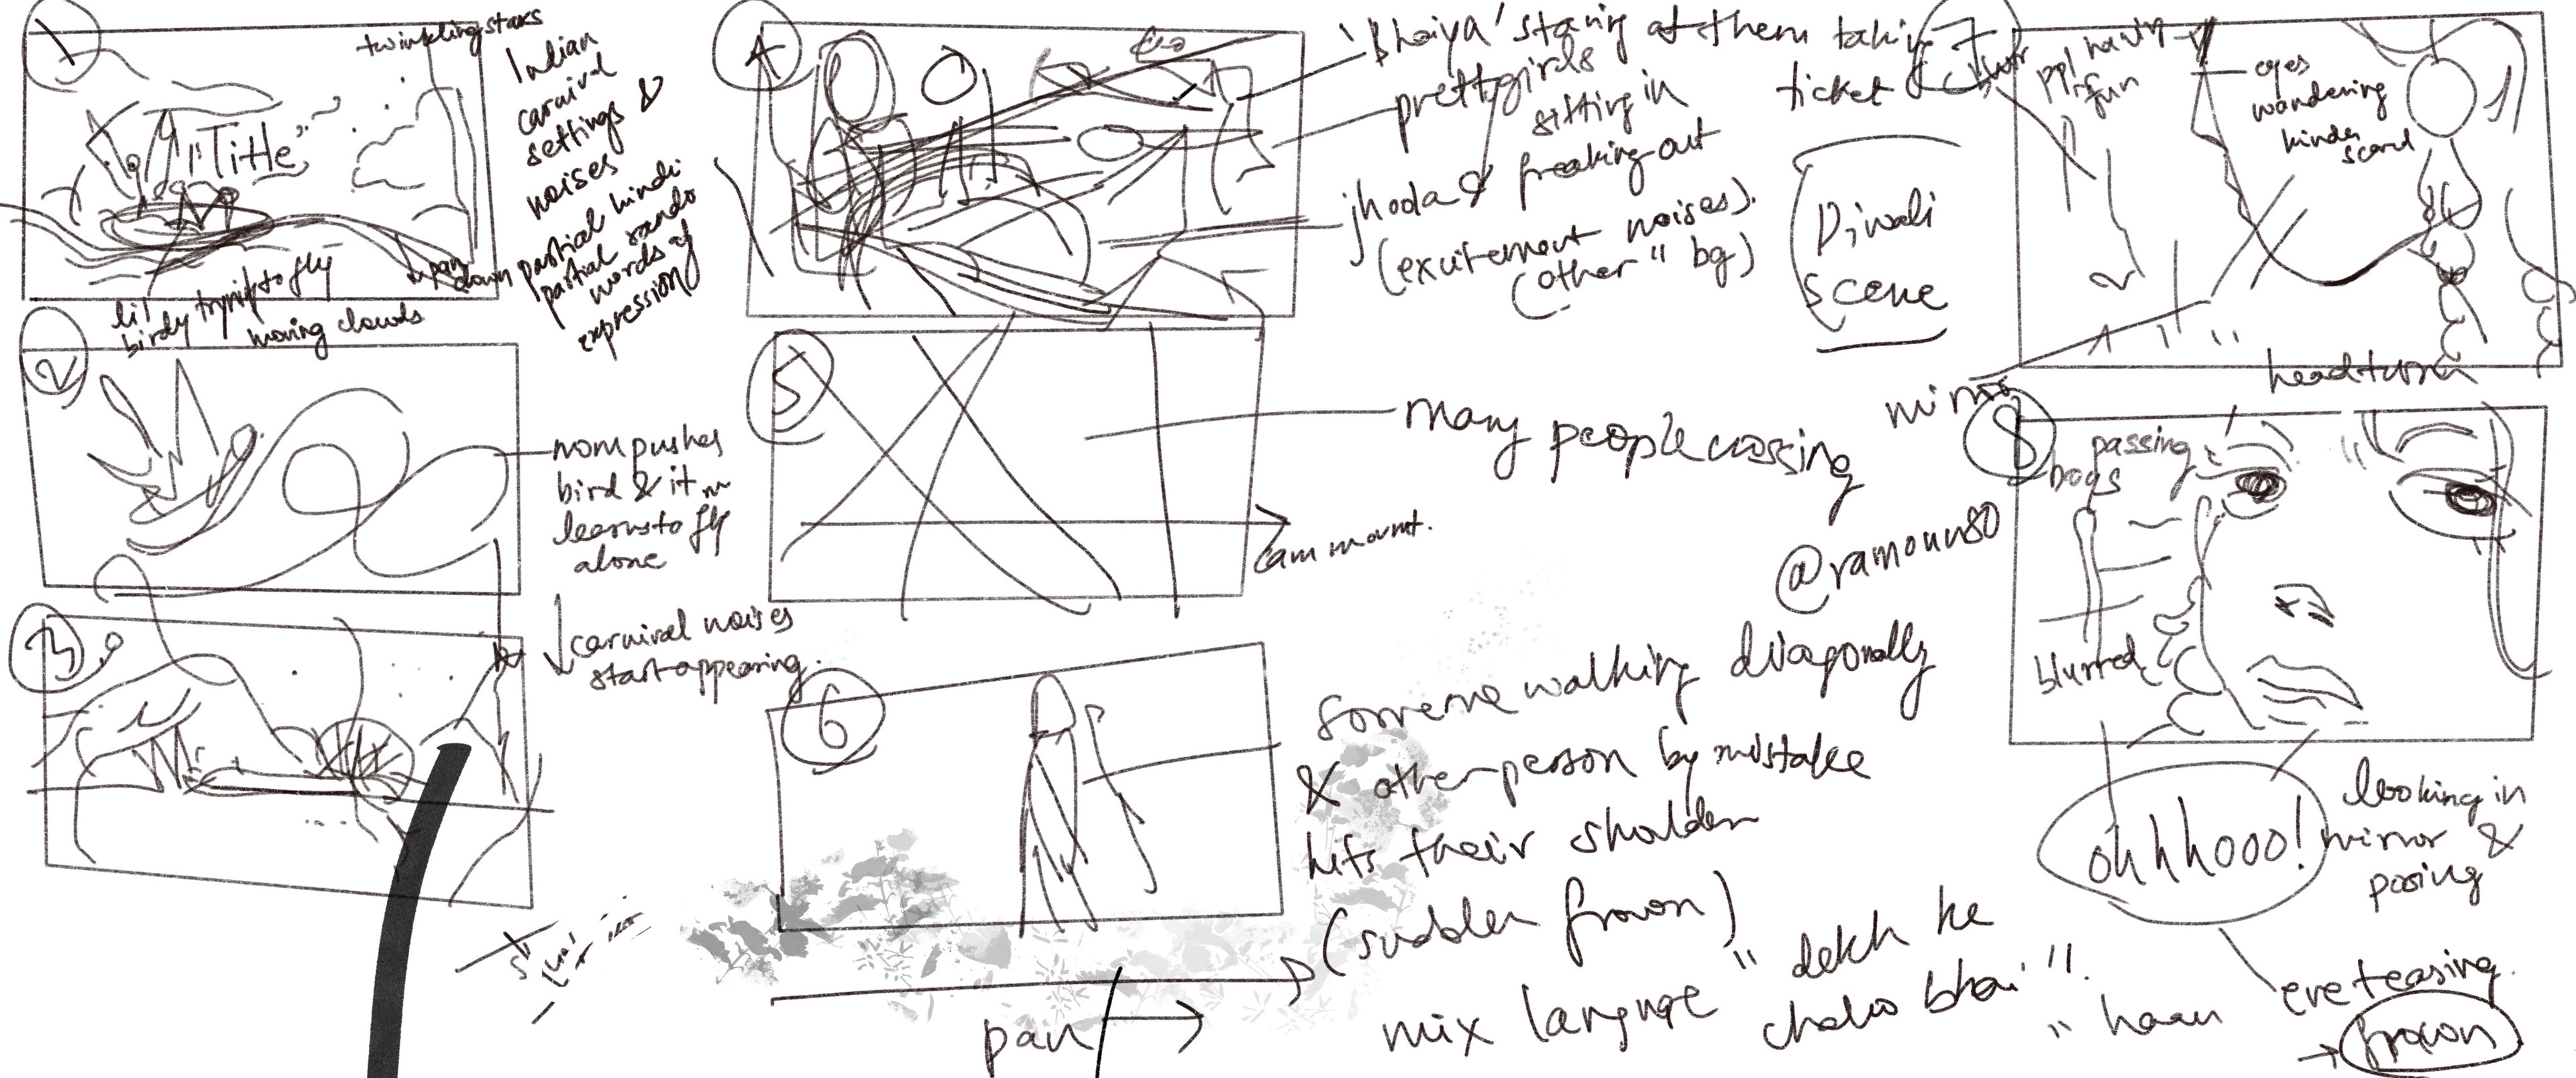 1
twinkling stars
"Title"
Indian
carnival
settings &
noises
partial hindi
partial rando
words of
expression
pan
down
lil
birdy trying to fly
moving clouds
2
mom pushes
bird & it
learns to fly
alone
carnival noises
start appearing.
3
4
'Bhaiya' staring at them taking
ticket
pretty girls
sitting in
jhoda & freaking out
(excitement noises).
(other " bg)
Diwali
scene
5
many people crossing
cam
6
someone walking diagonally
& other person by mistake
hits their shoulder
(sudden frown)
mix language "dekh ke
chalo bhai".
"haan
pan
7
ppl having
fun
eyes
wandering
kinda
scared
head turn
mirror
@ramoun80
8
passing
blurred
ohhhooo!
looking in
mirror &
posing
eve teasing.
frown